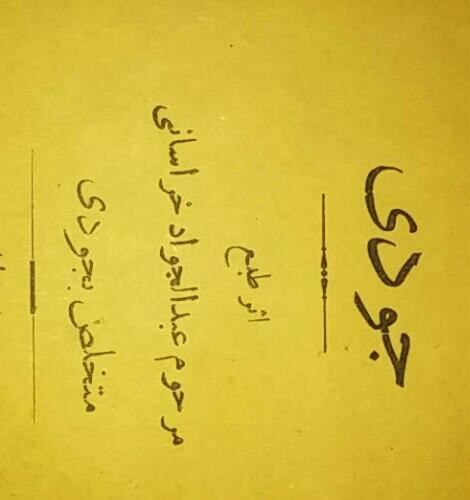 جودی
اثر طبع
مرحوم عبدالجواد خراسانی
متخلص بجودی